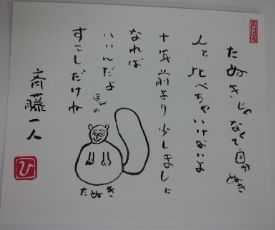 たぬきじゃなくて自分ぬき
人と比べちゃいけないよ
十年前より少しましに
なれば
いいんだよ
ほんの
すこしだけね
斎藤一人
ひ
たぬき